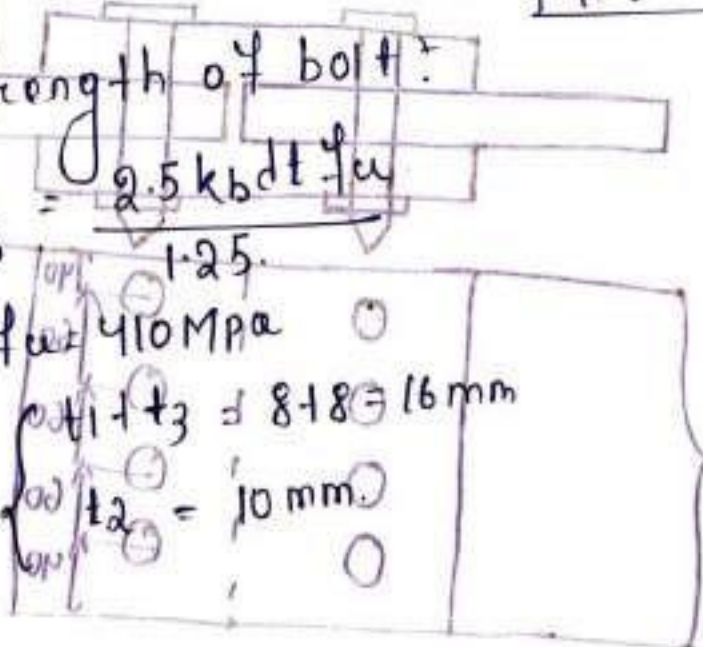 of bolt :
= 2.5 kb dt fu
1.25.
fu = 410 MPa
t1 + t3 = 8+8 = 16 mm
t2 = 10 mm.